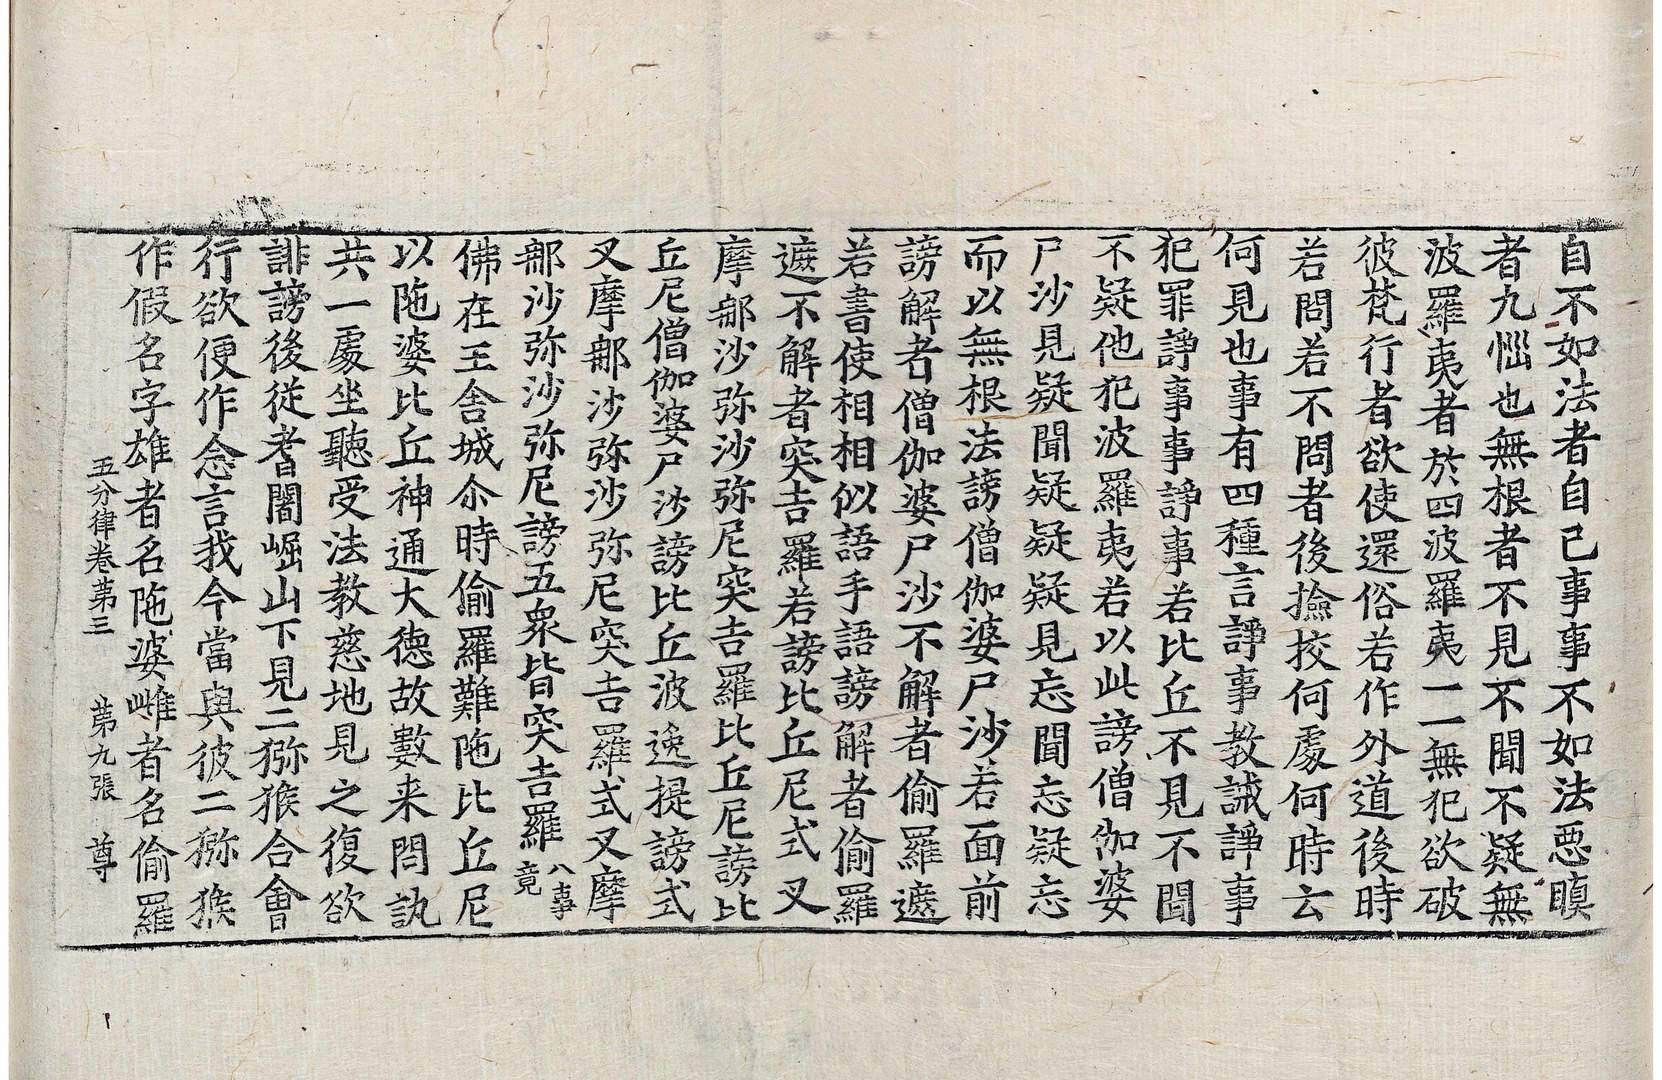 自不如法者自己事事不如法惡瞋
者九惱也無根者不見不聞不疑無
波羅夷者於四波羅夷一一無犯欲破
彼梵行者欲使還俗若作外道後時
若問若不問者後撿挍何處何時云
何見也事有四種言諍事教誡諍事
犯罪諍事事諍事若比丘不見不聞
不疑他犯波羅夷若以此謗僧伽婆
尸沙見疑聞疑疑疑見忘聞忘疑忘
而以無根法謗僧伽婆尸沙若面前
謗解者僧伽婆尸沙不解者偷羅遮
若書使相相似語手語謗解者偷羅
遮不解者突吉羅若謗比丘尼式叉
摩䣝沙弥沙弥尼突吉羅比丘尼謗比
丘尼僧伽婆尸沙謗比丘波逸提謗式
叉摩䣝沙弥沙弥尼突吉羅式叉摩
䣝沙弥沙弥尼謗五衆皆突吉羅 八事竟
佛在王舍城尒時偷羅難陁比丘尼
以陁婆比丘神通大德故數来問訊
共一處坐聽受法教慈地見之復欲
誹謗後從耆闍崛山下見二獼猴合會
行欲便作念言我今當與彼二獼猴
作假名字雄者名陁婆雌者名偷羅
五分律卷第三 第九張 尊